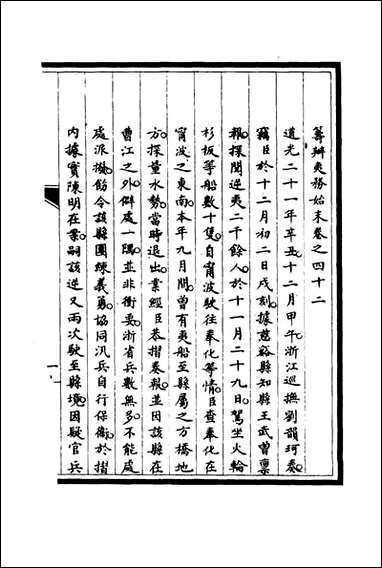 籌辦夷務始末卷之四十二
道光二十一年辛丑十二月甲午浙江巡撫劉韻珂奏
竊臣於十二月初二日戌刻據慈谿縣知縣王武曾稟
報探聞逆夷二千餘人於十一月二十九日駕坐火輪
杉板等船數十隻自甯波駛往奉化等情臣查奉化在
甯波之東南本年九月間曾有夷船至縣屬之方橋地
方探量水勢當時退出業經臣恭摺奏報並因該縣在
曹江之外僻處一隅並非衝要浙省兵數無多不能處
處派撥飭令該縣團練義勇協同汛兵自行保衞於摺
內據實陳明在案嗣該逆又兩次駛至縣境因疑官兵
一